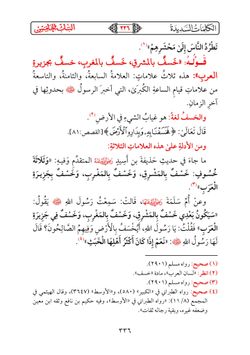 الكلمات السديدة
٣٣٦
تَطْرُدُ النَّاسَ إِلَىٰ مَحْشَرِهِمْ»(١).
قوله: «خَسْفٌ بالمشرقِ، خَسفٌ بالمغربِ، خسفٌ بجزيرةِ
العربِ»: هذه ثلاثُ علاماتٍ: العلامةُ السابعةُ، والثامنةُ، والتاسعةُ
من علاماتِ قيامِ الساعةِ الكُبرَى، التي أخبرَ الرسولُ ﷺ بحدوثِها في
آخرِ الزمانِ.
والخسفُ لغةً: هو غيابُ الشيءِ في الأرضِ(٢).
قال تَعَالَىٰ: ﴿فَخَسَفْنَا بِهِ وَبِدَارِهِ الْأَرْضَ﴾ [القصص: ٨١].
ومن الأدلةِ علىٰ هذه العلاماتِ الثلاثةِ:
ما جاءَ في حديثِ حُذيفةَ بنِ أَسِيدٍ رَضِيَ اللَّهُ عَنْهُ المتقدِّمِ وفيهِ: «وَثَلَاثَةُ
خُسُوفٍ: خَسْفٌ بِالْمَشْرِقِ، وَخَسْفٌ بِالْمَغْرِبِ، وَخَسْفٌ بِجَزِيرَةِ
الْعَرَبِ»(٣).
وعنْ أُمِّ سَلَمَةَ رَضِيَ اللَّهُ عَنْهَا، قَالَتْ: سَمِعْتُ رَسُولَ اللهِ ﷺ يَقُولُ:
«سَيَكُونُ بَعْدِي خَسْفٌ بِالْمَشْرِقِ، وَخَسْفٌ بِالْمَغْرِبِ، وَخَسْفٌ فِي جَزِيرَةِ
الْعَرَبِ» قُلْتُ: يَا رَسُولَ اللهِ، أَيُخْسَفُ بِالْأَرْضِ وَفِيهِمُ الصَّالِحُونَ؟ قَالَ
لَهَا رَسُولُ اللهِ ﷺ: «نَعَمْ إِذَا كَانَ أَكْثَرُ أَهْلِهَا الْخَبَثَ»(٤).
(١) صحيح: رواه مسلم (٢٩٠١).
(٢) انظر: «لسان العرب»، مادة «خسف».
(٣) صحيح: رواه مسلم (٢٩٠١).
(٤) صحيح: رواه الطبراني في «الكبير» (٥٨٠)، و«الأوسط» (٣٦٤٧)، وقال الهيثمي في
المجمع (٨/ ١١): «رواه الطبراني في «الأوسط»، وفيه حكيم بن نافع وثقه ابن معين
وضعفه غيره، وبقية رجاله ثقات».
٣٣٦